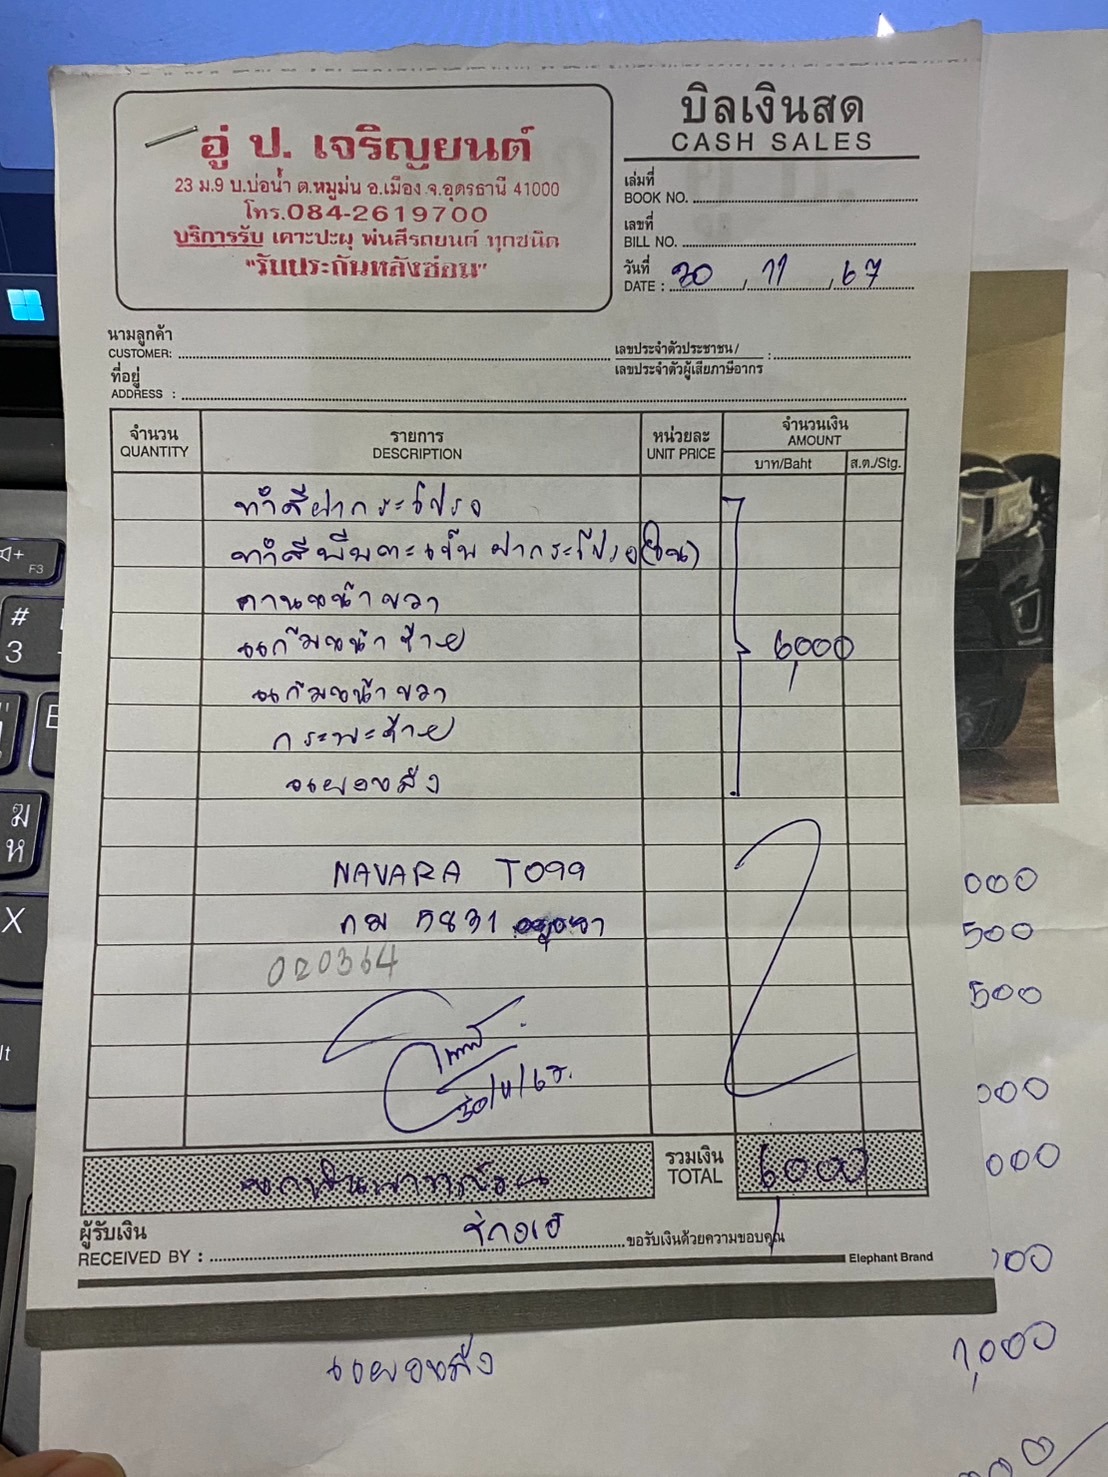 บิลเงินสด
CASH SALES
อู่ ป. เจริญยนต์
23 ม.9 บ.บ่อน้ำ ต.หมูม่น อ.เมือง จ.อุดรธานี 41000
โทร.084-2619700
บริการรับ เคาะปะผุ พ่นสีรถยนต์ ทุกชนิด
"รับประกันหลังซ่อม"
เล่มที่
BOOK NO.
เลขที่
BILL NO.
วันที่
DATE : 20 / 11 / 67
นามลูกค้า
CUSTOMER:
เลขประจำตัวประชาชน /
เลขประจำตัวผู้เสียภาษีอากร :
ที่อยู่
ADDRESS :
จำนวน รายการ หน่วยละ จำนวนเงิน
QUANTITY DESCRIPTION UNIT PRICE AMOUNT
บาท/Baht ส.ต./Stg.
ทำสีฝากระโปรง
ทำสีพื้นกะเข็บ ฝากระโปรง(ใน)
คานหน้าขวา
แก้มหน้าซ้าย 6,000
แก้มหน้าขวา
กระพะซ้าย
แผงหลัง
NAVARA T099
กม 5831 อยุธยา
020364
30/11/67.
หกพันบาทถ้วน
รวมเงิน
TOTAL 6,000
ผู้รับเงิน
RECEIVED BY :
ขอรับเงินด้วยความขอบคุณ
Elephant Brand
แผงหลัง
000
500
500
000
000
000
1,000
F3
#
3
ฆ
ห
X